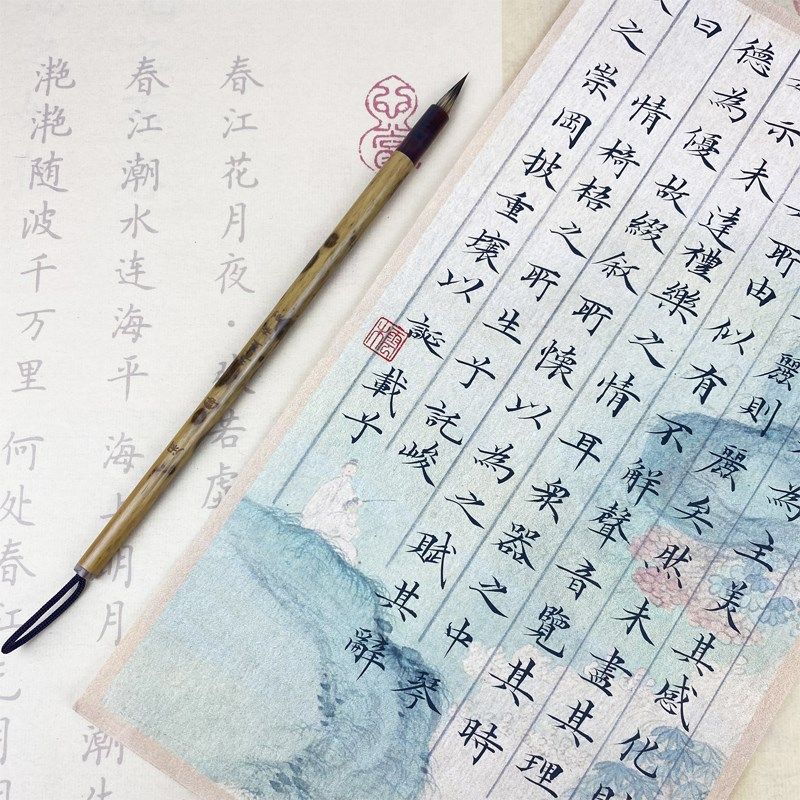 為主美其感化則
麗則麗矣然未盡其理
所由似有不解聲音覽其時
示未達禮樂之情耳眾器之中琴
德為優故綴敘所懷以為之賦其辭
曰
情椅梧之所生兮託峻
之崇岡披重壤以誕載兮
春江花月夜·若虚
春江潮水连海平 海上明月 潮生
滟滟随波千万里 何处春江无月